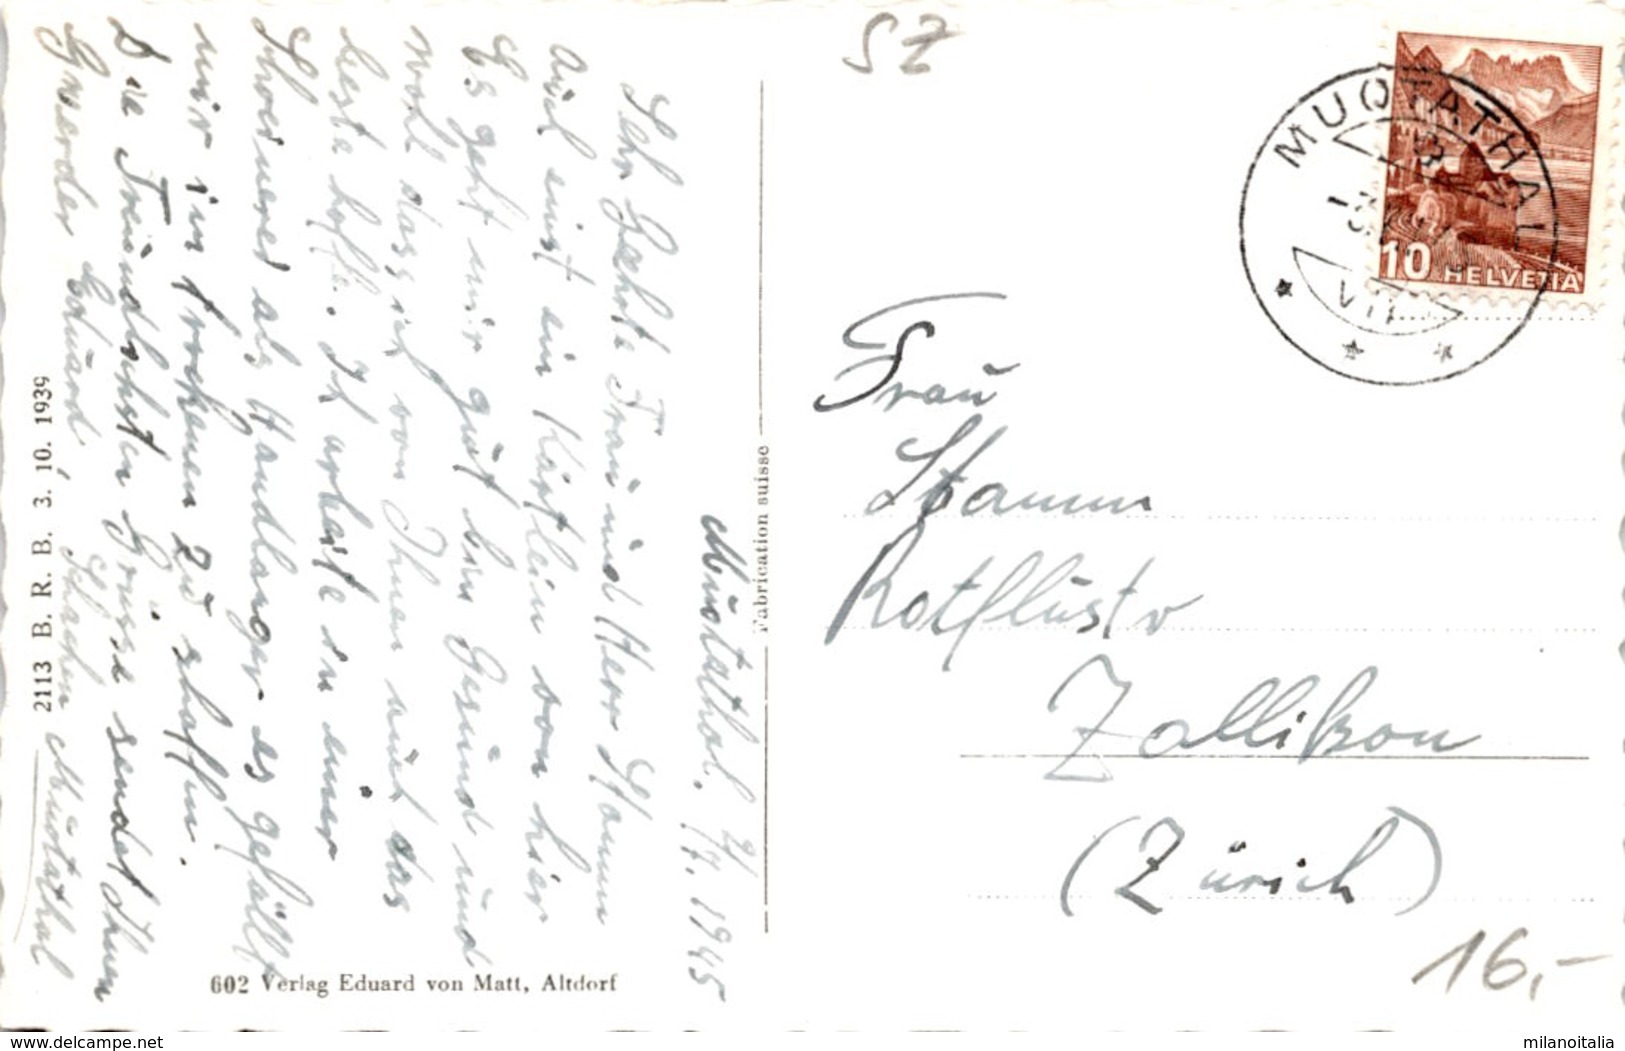 SZ
MUOTATHAL
VII
10 HELVETIA
Muotathal. 2/7. 1945
Sehr Geehrte Frau und Herr Stamm
Auch einst ein Kärtlein von hier
Es geht mir gut bin Gesund und
wohl das ich von Ihnen auch das
beste hoffe. Ich arbeite in einer
Schreinerei als Handlanger es gefällt
mir im trockenen zu schaffen.
Die Freundlichsten Grüsse sendet Ihnen
Gwerder Eduard, Schachen Muotathal
2113 B. R. B. 3. 10. 1939
602 Verlag Eduard von Matt, Altdorf
Fabrication suisse
Frau
Stamm
Rotflustr
Zollikon
(Zürich)
16,-
delcampe.net
milanoitalia